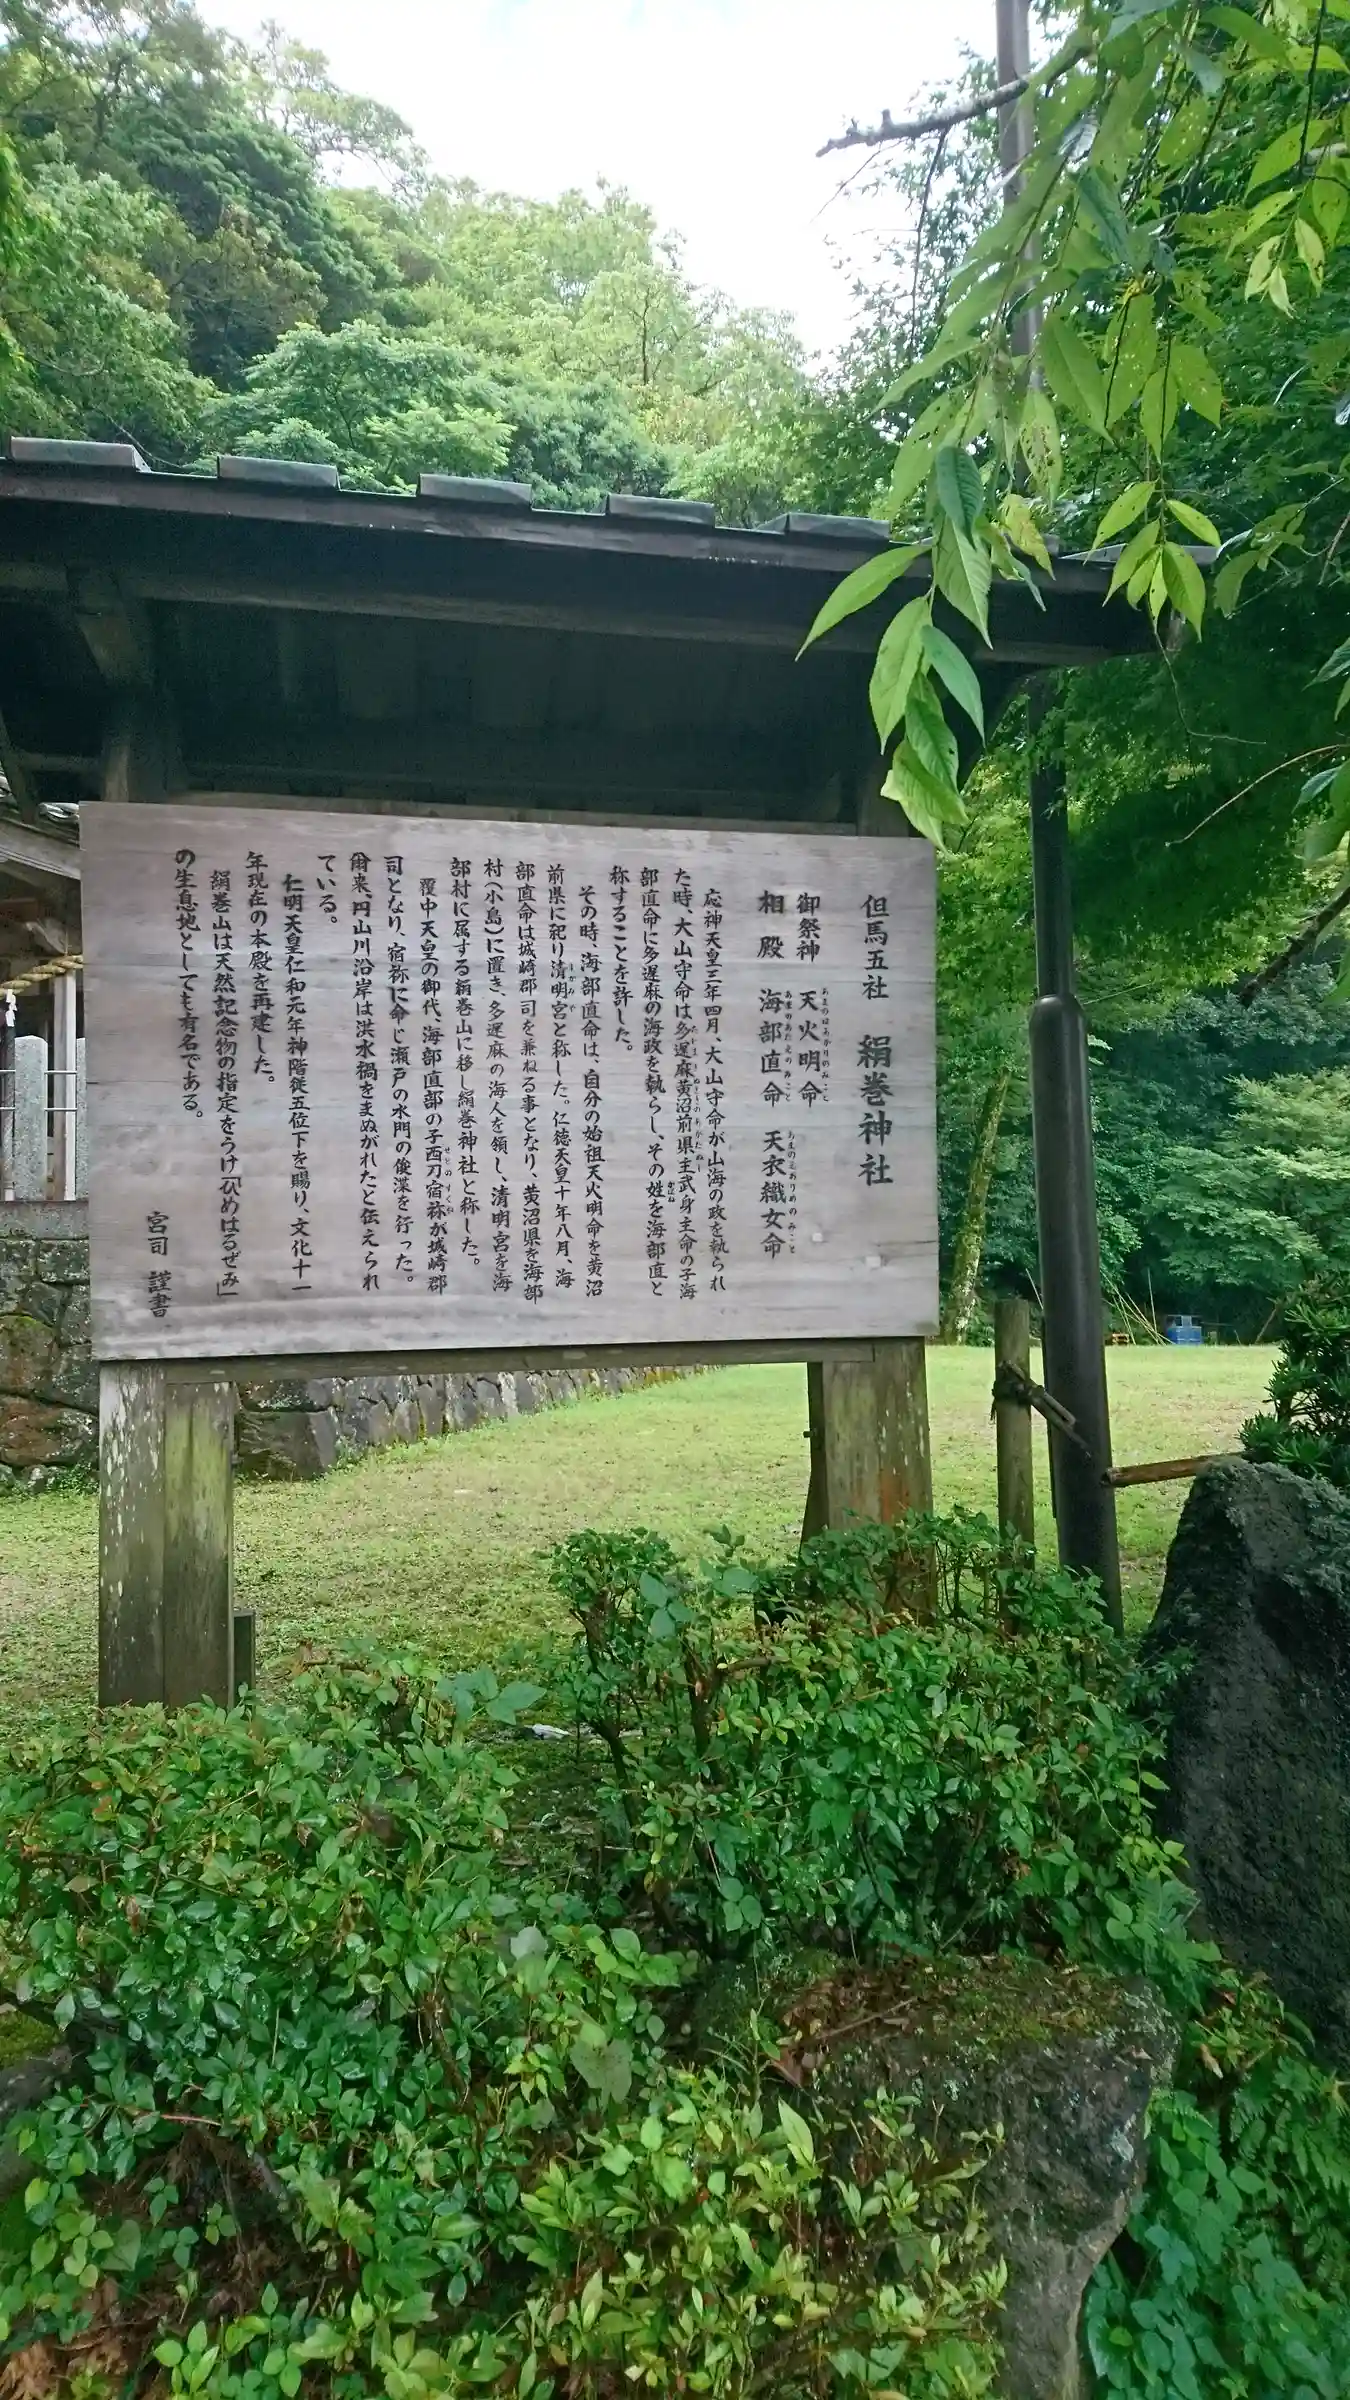 但馬五社　絹巻神社
御祭神　天火明命
相殿　海部直命　天衣織女命
応神天皇三年四月、大山守命が山海の政を執られ
た時、大山守命は多遅麻黄沼前県主武身主命の子海
部直命に多遅麻の海政を執らし、その姓を海部直と
称することを許した。
その時、海部直命は、自分の始祖天火明命を黄沼
前県に祀り清明宮と称した。仁徳天皇十年八月、海
部直命は城崎郡司を兼ねる事となり、黄沼県を海部
村（小島）に置き、多遅麻の海人を領し、清明宮を海
部村に属する絹巻山に移し絹巻神社と称した。
履中天皇の御代、海部直部の子西刀宿祢が城崎郡
司となり、宿祢に命じ瀬戸の水門の俊渫を行った。
爾来、円山川沿岸は洪水禍をまぬがれたと伝えられ
ている。
仁明天皇仁和元年神階従五位下を賜り、文化十一
年現在の本殿を再建した。
絹巻山は天然記念物の指定をうけ「ひめはるぜみ」
の生息地としても有名である。
宮司　謹書